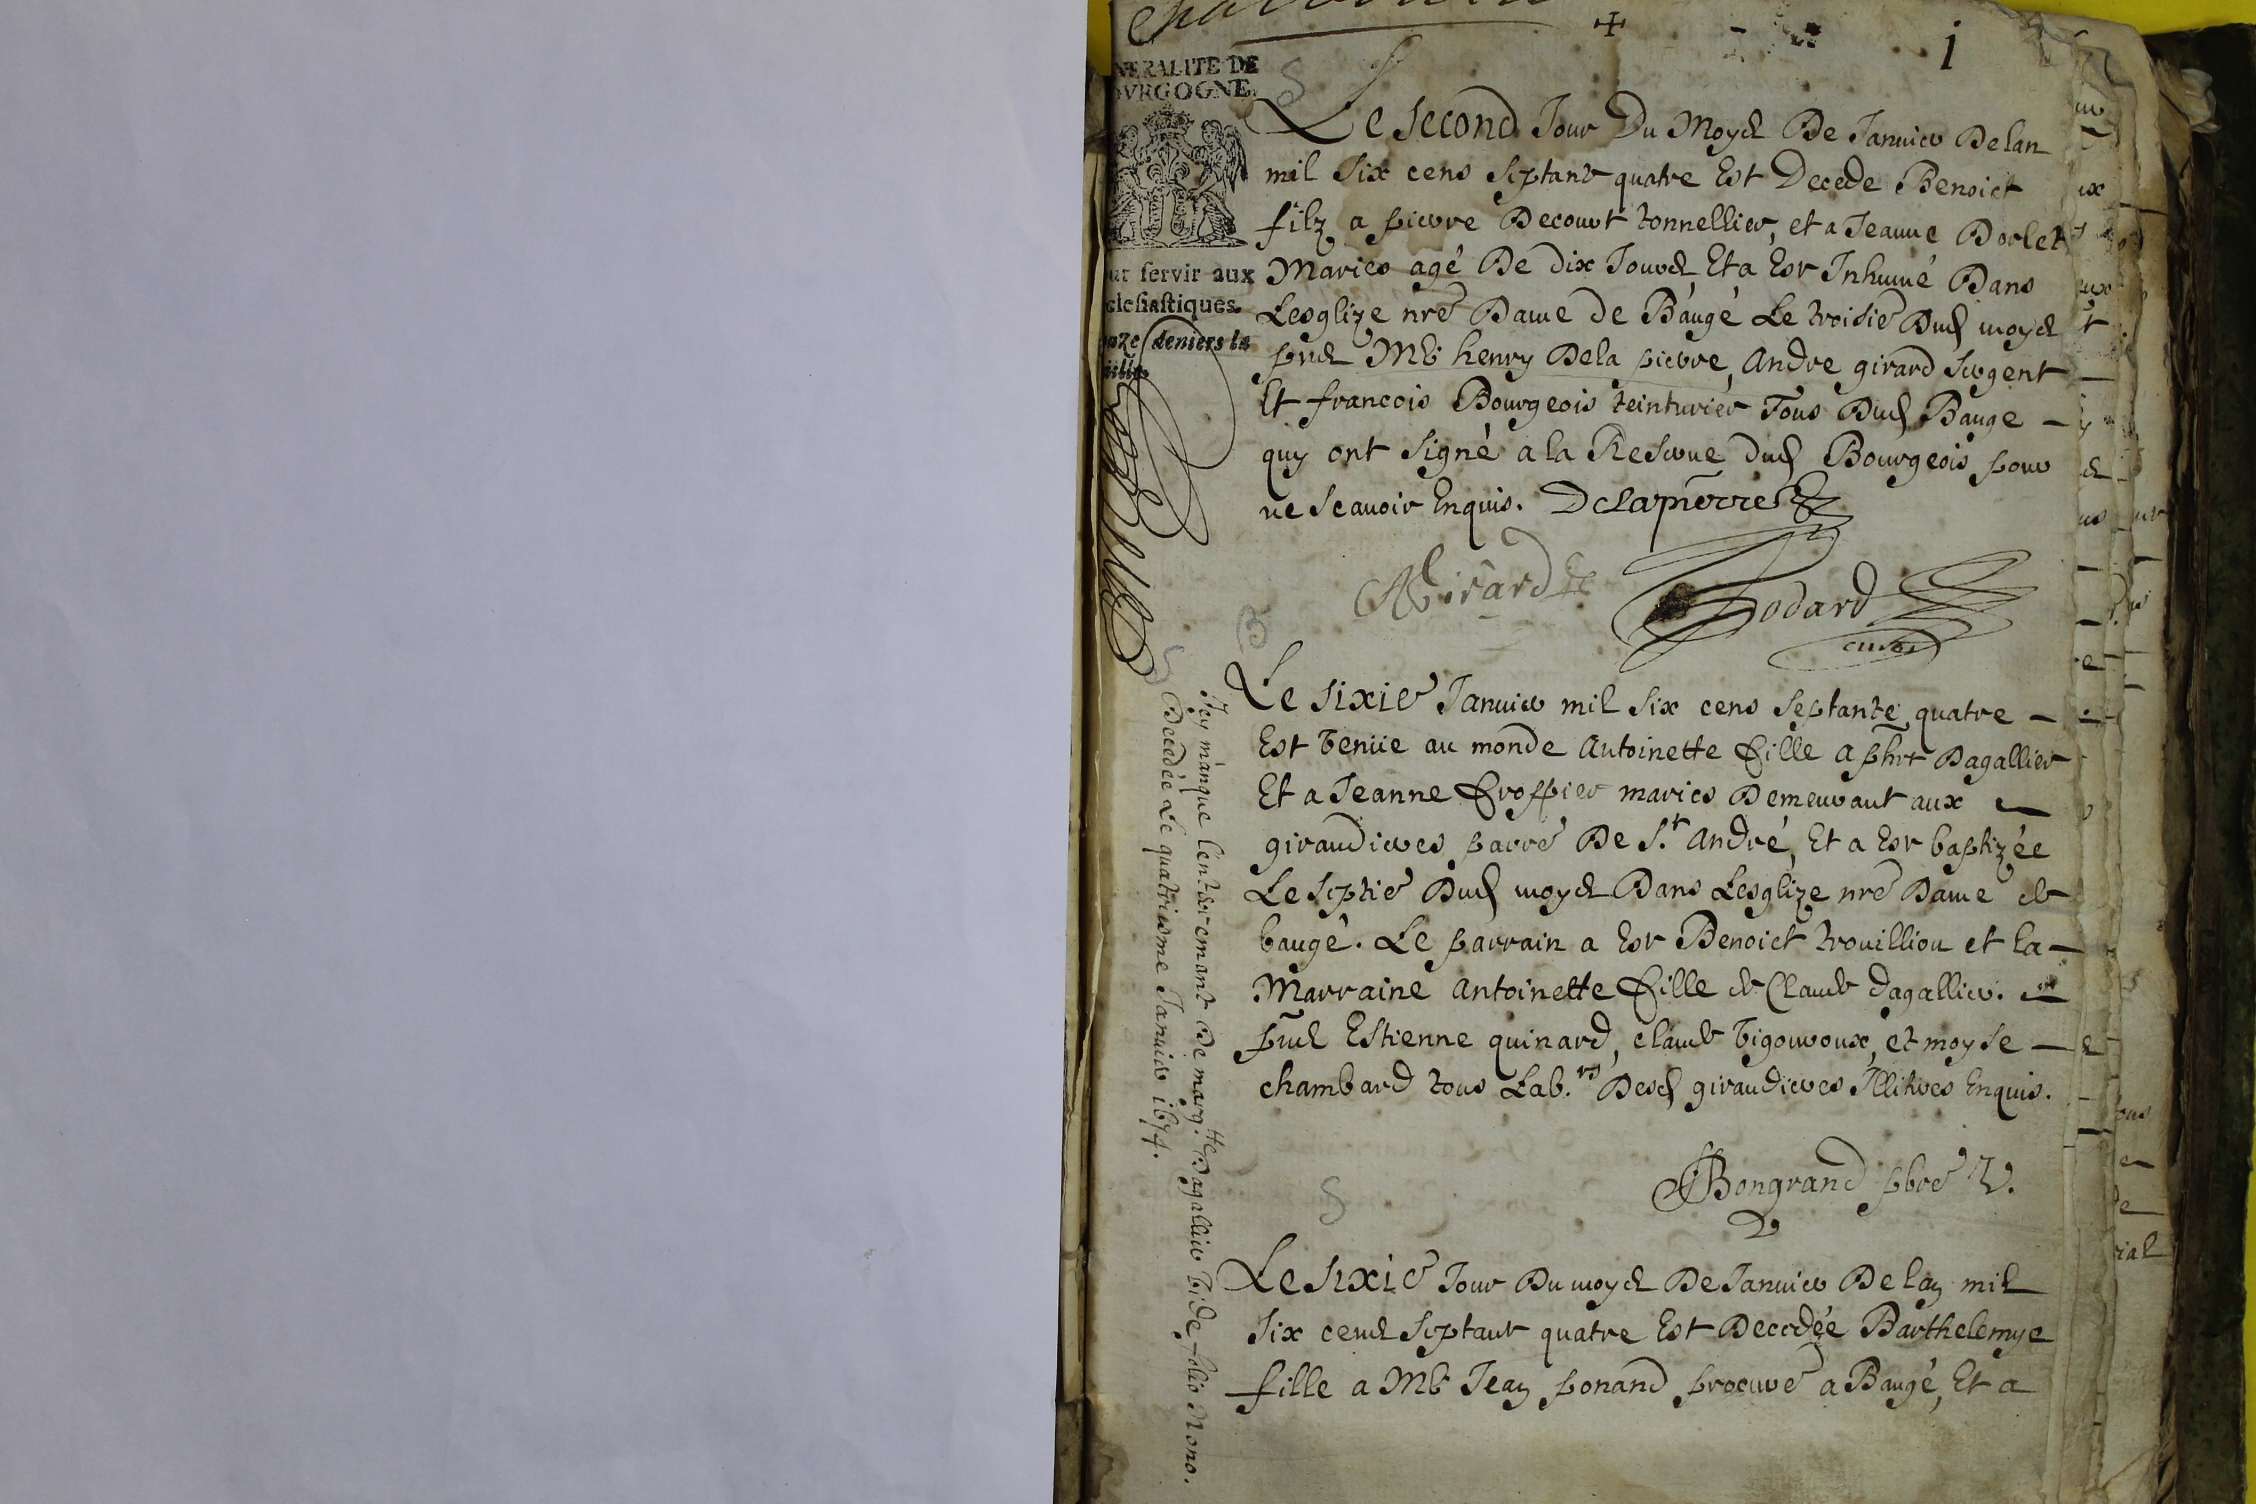 + 1
NERALITE DE
OVRGOGNE.
ur servir aux
clesiastiques.
nze deniers la
Le second Jour Du Moys De Januier De lan
mil six cens septante quatre Est Decede Benoict
filz a pierre Decourt tonnellier, et a Jeanne Borlet
Maries agé De dix Jours, Et a Est Inhumé Dans
Lesglize nre Dame de Baugé Le troisie Dud moys
pns Me henry Dela pierre, Andre girard sergent
Et francois Bourgeois teinturier Tous Dud Bauge
quy ont signé a la Reserue dud Bourgeois pour
ne scauoir Enquis. Delapierre
AGirard
Godard
curé
Le sixie Januier mil six cens septante quatre
Est Venüe au monde Antoinette fille a phrt Dagallier
Et a Jeanne froppier maries Demeurant aux
giraudieres parre De St. André, Et a Est baptizée
Le septie Dud moys Dans Lesglize nre Dame de
baugé. Le parrain a Est Benoict trouilliou et la
Marraine Antoinette fille de Claude dagallier.
pns Estienne quinard, claude Vigouroux, et moyse
chambard tous Lab.rs Desd giraudieres Illitres Enquis.
Bongrand pbre V.
Le sixie Jour Du moys De Januier De lan mil
six cens septante quatre Est Decedée Barthelemye
fille a Me Jean ponand procure a Baugé, Et a
Icy manque lenterremant De marg.tte Dagallier Vide folio Nono.
Decedée Le quatriesme Januier 1674.